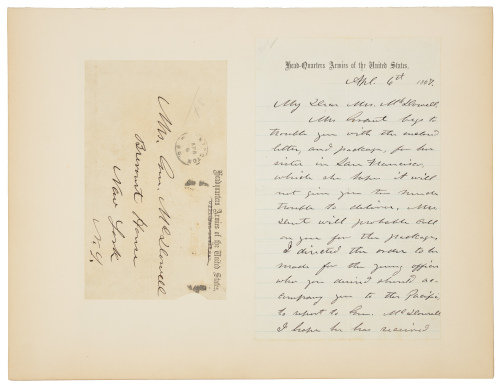 Mrs. Gen. McDowell
Brevoort House
New York
N.Y.
Headquarters Armies of the United States.
Head-Quarters Armies of the United States.
Apl. 6th 1867.
My Dear Mrs. McDowell,
Mrs. Grant begs to
trouble you with the enclosed
letter, and package, for her
sister in San Francisco,
which she hopes it will
not give you too much
trouble to deliver. Mrs.
Dent will probably call
on you for the packages.
I directed the order to be
made for the young officer
who you desired should ac-
company you to the Pacific
to report to Gen. McDowell.
I hope he has received